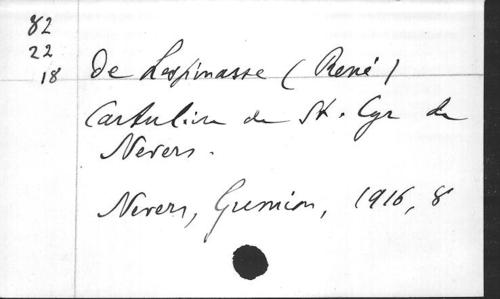 82
22
18
de Lespinasse (René)
Cartulaire de St. Cyr de
Nevers.
Nevers, , 1916, 8